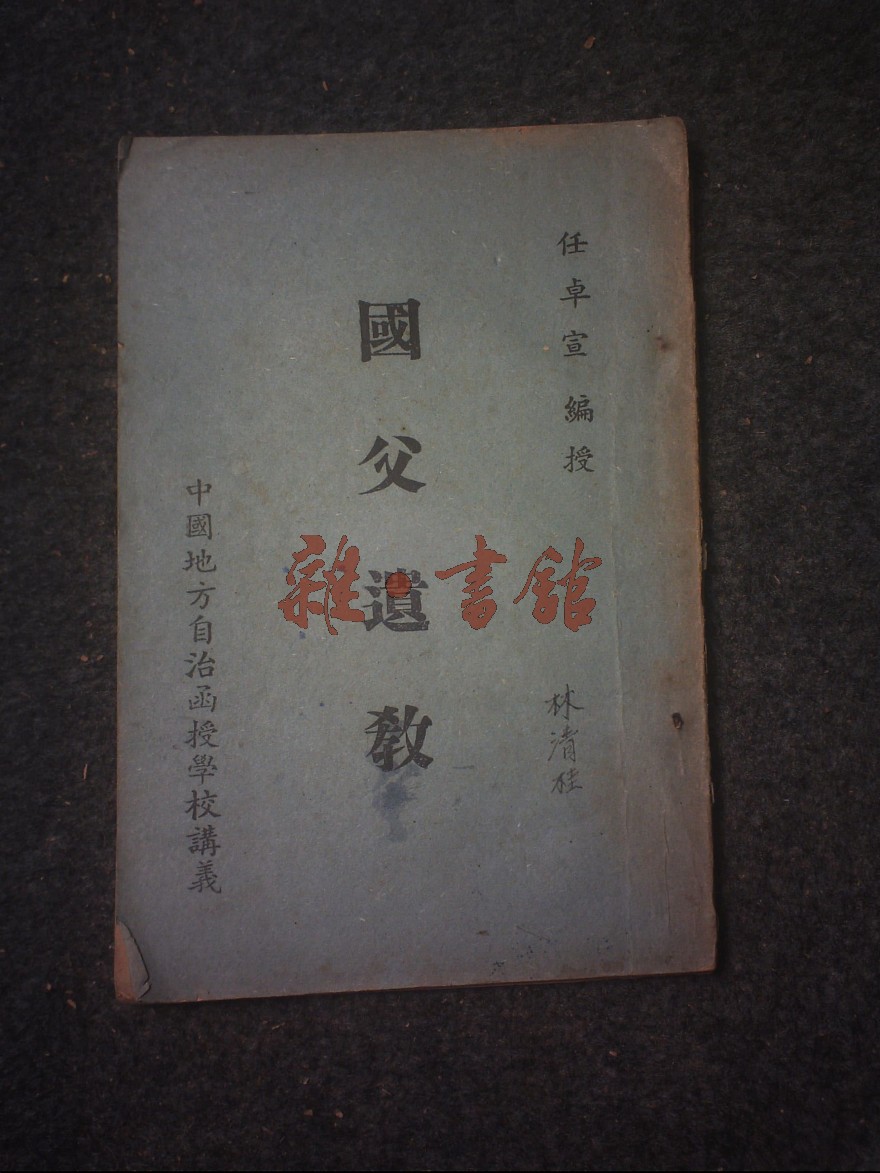 任卓宣 編授
國父遺教
中國地方自治函授學校講義
林清桂
雜·書館